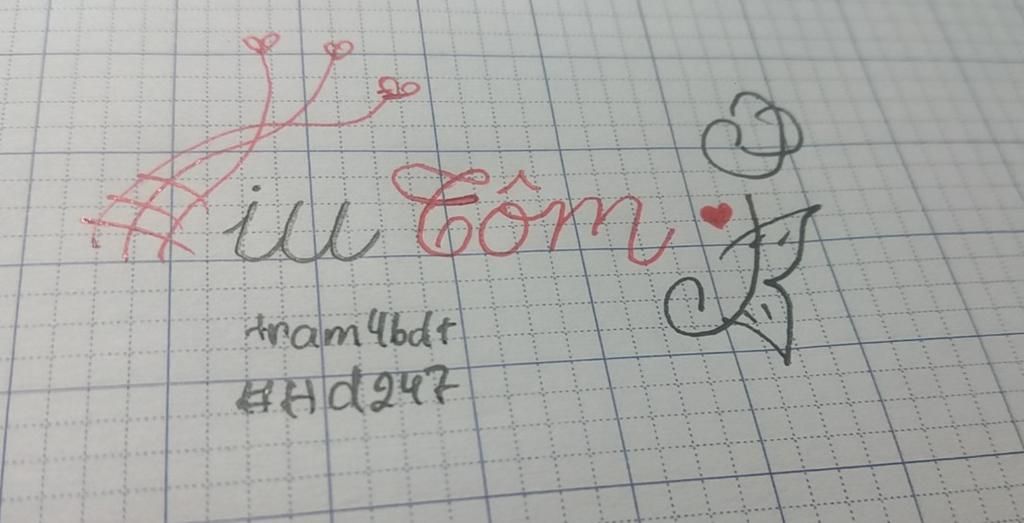 iu Tôm
tram4bdt
HHd247